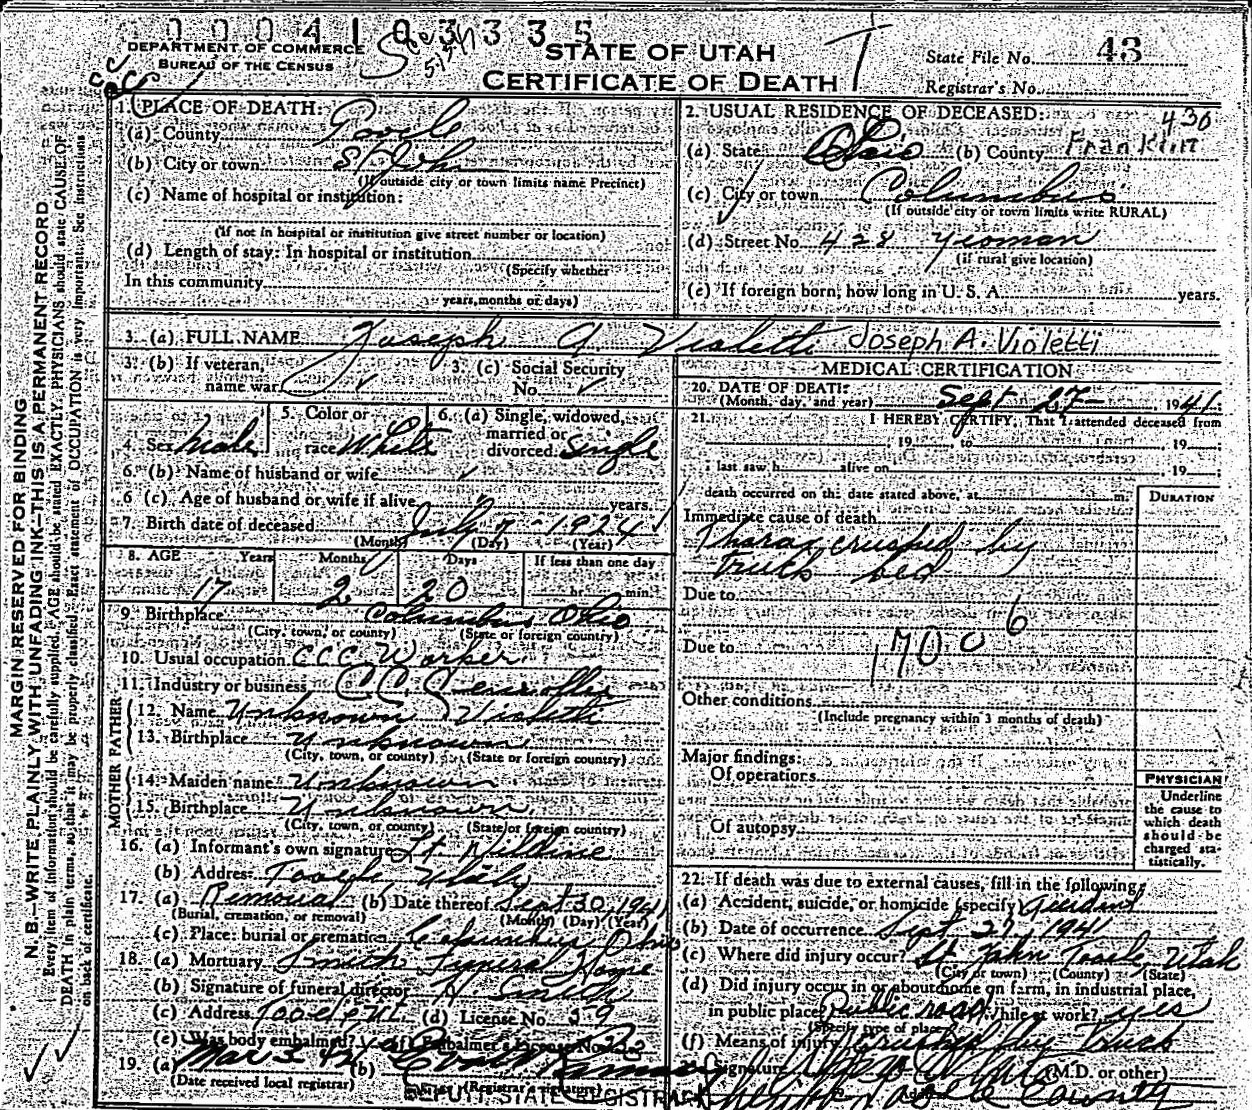 0 0 0 4 1 0 3 3 3 5
DEPARTMENT OF COMMERCE
BUREAU OF THE CENSUS
STATE OF UTAH
CERTIFICATE OF DEATH
State File No. 43
Registrar's No.
MARGIN RESERVED FOR BINDING
N. B.—WRITE PLAINLY WITH UNFADING INK—THIS IS A PERMANENT RECORD
Every item of information should be carefully supplied. AGE should be stated EXACTLY. PHYSICIANS should state CAUSE OF
DEATH in plain terms, so that it may be properly classified. Exact statement of OCCUPATION is very important. See instructions
on back of certificate.
1. PLACE OF DEATH:
(a) County Tooele
(b) City or town St John
(If outside city or town limits name Precinct)
(c) Name of hospital or institution:
(If not in hospital or institution give street number or location)
(d) Length of stay: In hospital or institution
(Specify whether
In this community
years, months or days)
2. USUAL RESIDENCE OF DECEASED: 430
(a) State Ohio (b) County Franklin
(c) City or town Columbus
(If outside city or town limits write RURAL)
(d) Street No. 428 Yeoman
(if rural give location)
(e) If foreign born, how long in U. S. A. years.
3. (a) FULL NAME Joseph A Violetti Joseph A. Violetti
3. (b) If veteran,
name war
3. (c) Social Security
No.
4. Sex Male
5. Color or
race White
6. (a) Single, widowed,
married or
divorced Single
6. (b) Name of husband or wife
6 (c). Age of husband or wife if alive years.
7. Birth date of deceased July 7 - 1924
(Month) (Day) (Year)
8. AGE Years Months Days If less than one day
17 2 20 hr. min.
9. Birthplace Columbus Ohio
(City, town, or county) (State or foreign country)
10. Usual occupation CCC Worker
11. Industry or business CCC enrollee
FATHER
12. Name Unknown Violetti
13. Birthplace Unknown
(City, town, or county) (State or foreign country)
MOTHER
14. Maiden name Unknown
15. Birthplace Unknown
(City, town, or county) (State or foreign country)
16. (a) Informant's own signature Lt
(b) Address Tooele Utah
17. (a) Removal (b) Date thereof Sept 30, 1941
(Burial, cremation, or removal) (Month) (Day) (Year)
(c) Place: burial or cremation Columbus Ohio
18. (a) Mortuary Smith Funeral Home
(b) Signature of funeral director Smith
(c) Address Tooele Ut (d) License No. 59
(e) Was body embalmed? Yes (f) Embalmer's License No.
19. (a) Mar 3 42 (b)
(Date received local registrar) (Registrar's signature)
DEPUTY STATE REGISTRAR
MEDICAL CERTIFICATION
20. DATE OF DEATH:
(Month, day, and year) Sept 27 1941
21. I HEREBY CERTIFY, That I attended deceased from
, 19 , to , 19 ;
I last saw h alive on , 19 ;
death occurred on the date stated above, at m.
DURATION
Immediate cause of death
Thorax crushed by
truck bed
Due to
Due to 170 C 6
Other conditions
(Include pregnancy within 3 months of death)
Major findings:
Of operations
Of autopsy
PHYSICIAN
Underline
the cause to
which death
should be
charged sta-
tistically.
22. If death was due to external causes, fill in the following:
(a) Accident, suicide, or homicide (specify) Accident
(b) Date of occurrence Sept 27, 1941
(c) Where did injury occur? St John Tooele, Utah
(City or town) (County) (State)
(d) Did injury occur in or about home on farm, in industrial place,
in public place? Public road While at work? yes
(Specify type of place)
(f) Means of injury Crushed by Truck
Signature (M.D. or other)
County